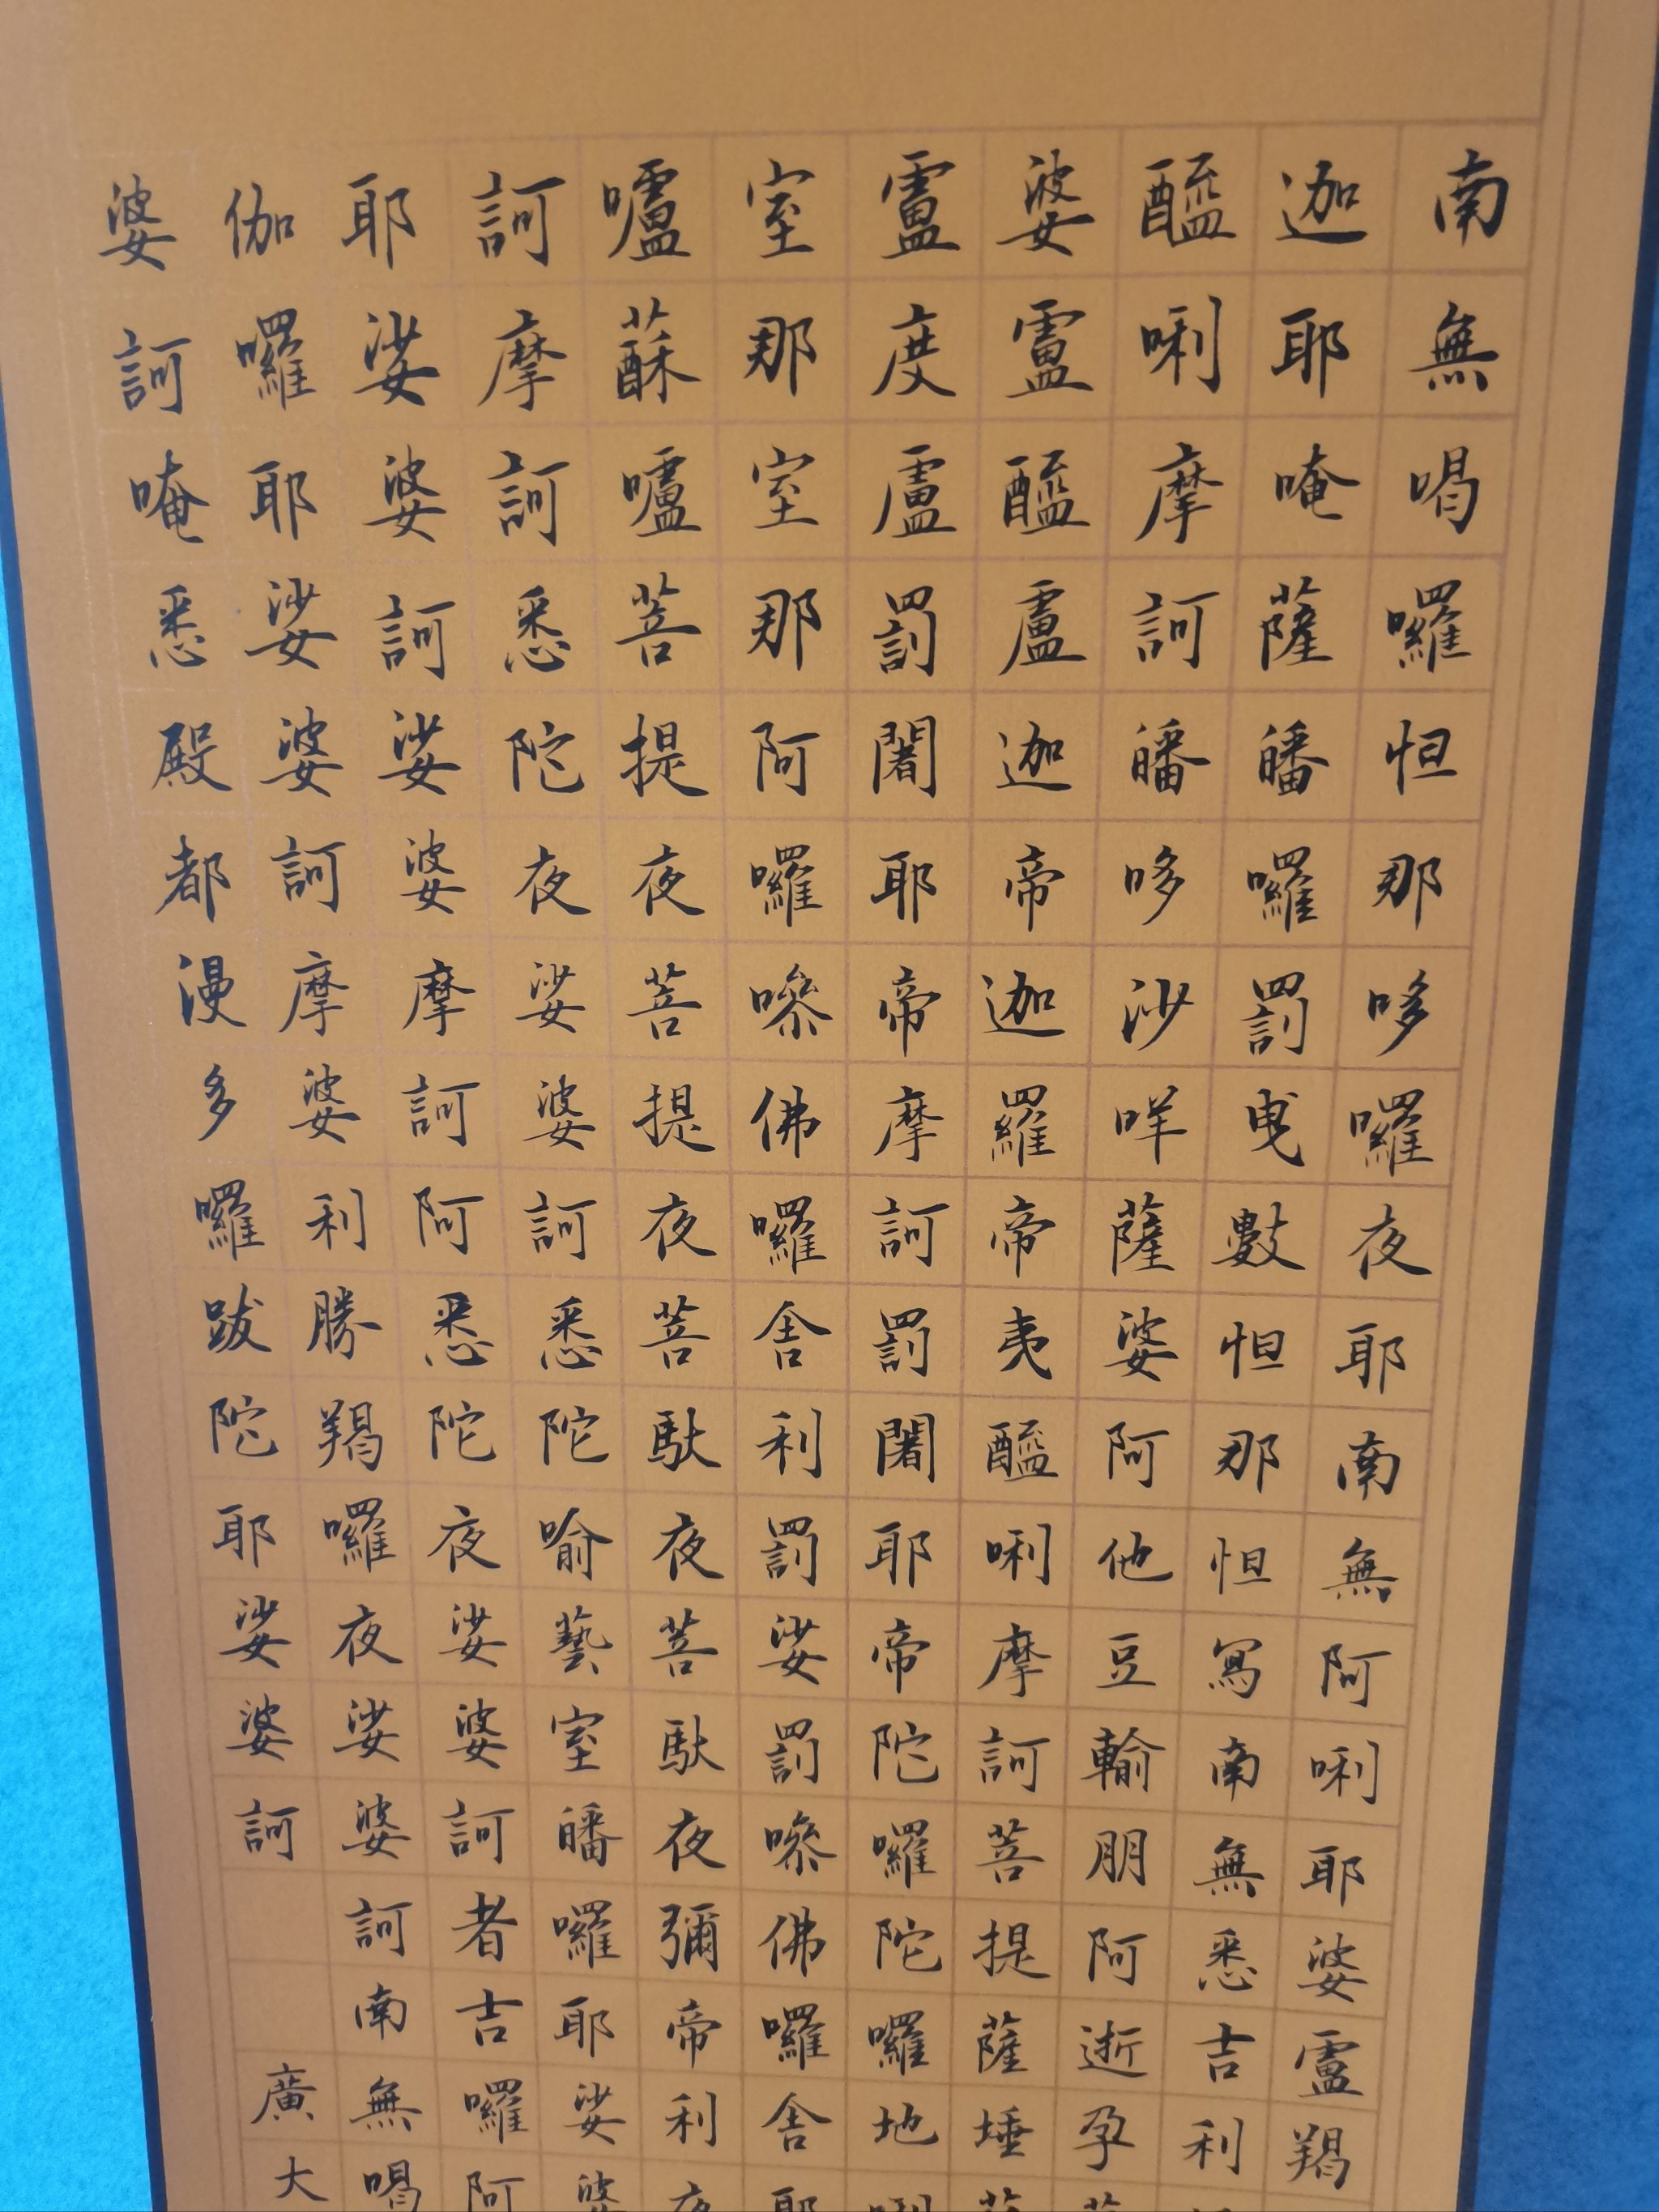 南無喝囉怛那哆囉夜耶南無阿唎耶婆盧羯
迦耶唵薩皤囉罰曳數怛那怛寫南無悉吉利
醯唎摩訶皤哆沙咩薩婆阿他豆輸朋阿逝孕
婆盧醯盧迦帝迦羅帝夷醯唎摩訶菩提薩埵
盧度盧罰闍耶帝摩訶罰闍耶帝陀囉陀囉地唎
室那室那阿囉嘇佛囉舍利罰娑罰嘇佛囉舍耶
嚧酥嚧菩提夜菩提夜菩馱夜菩馱夜彌帝利夜
訶摩訶悉陀夜娑婆訶悉陀喻藝室皤囉耶娑婆
耶娑婆訶娑婆摩訶阿悉陀夜娑婆訶者吉囉阿
伽囉耶娑婆訶摩婆利勝羯囉夜娑婆訶南無喝
婆訶唵悉殿都漫多囉跋陀耶娑婆訶
廣大